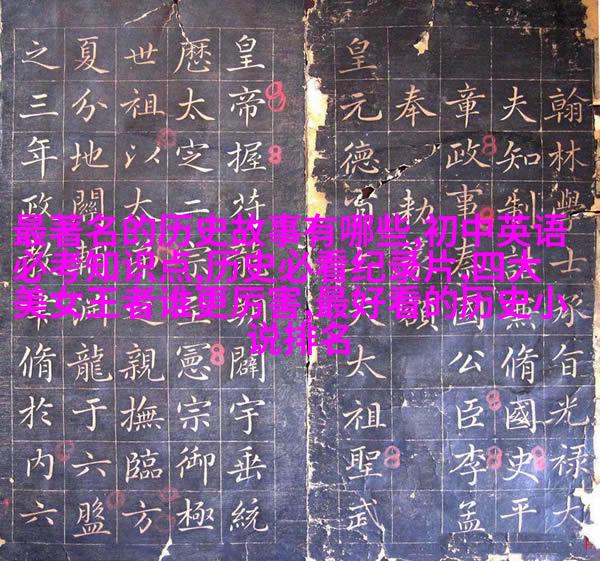 最著名的历史故事有哪些,初中英语
必考知识点,历史必看纪录片,四大
美女王者谁更厉害,最好看的历史小
说排名
翰林學士承旨光祿大
夫知制兼脩國史平
章政事秦國公臣李孟
奉勅
皇元德太祖聖武
皇帝握符闢宇垂統
歷太定二憲宗御極
世祖以大親撫臨方
夏分地關龍于六盤
之三年政脩於内六